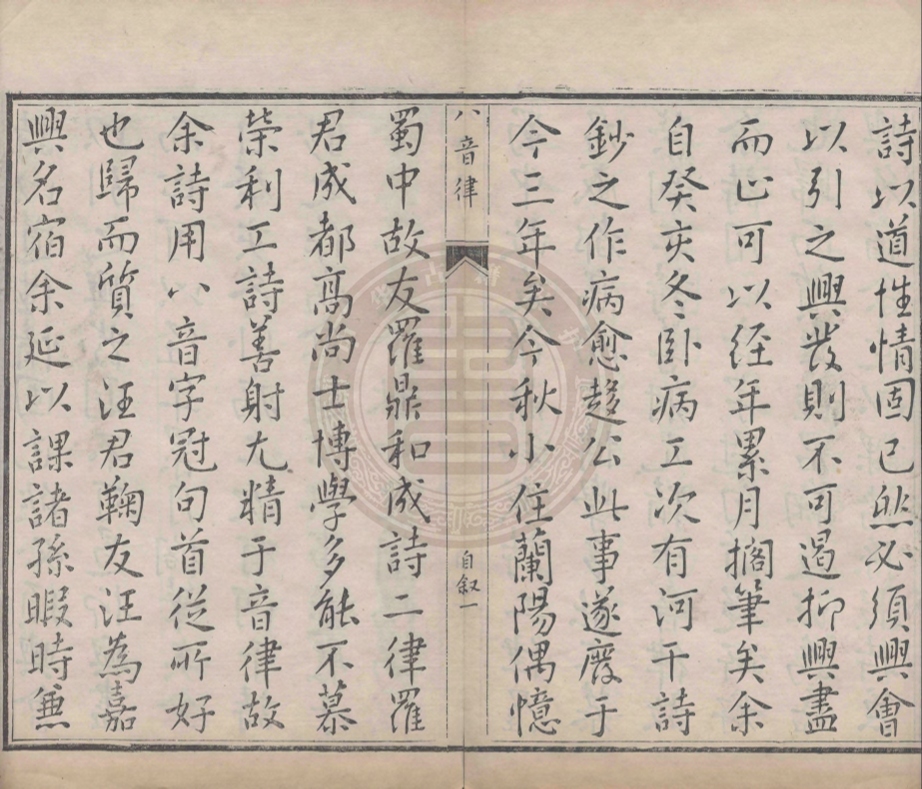 詩以道性情固已然必須興會
以引之興發則不可遏抑興盡
而止可以經年累月擱筆矣余
自癸亥冬卧病工次有河干詩
鈔之作病愈趨公此事遂廢于
今三年矣今秋小住蘭陽偶憶
八音律
自叙一
蜀中故友羅鼎和成詩二律羅
君成都高尚士博學多能不慕
榮利工詩善射尤精于音律故
余詩用八音字冠句首從所好
也歸而質之汪君鞠友汪為嘉
興名宿余延以課諸孫暇時兼